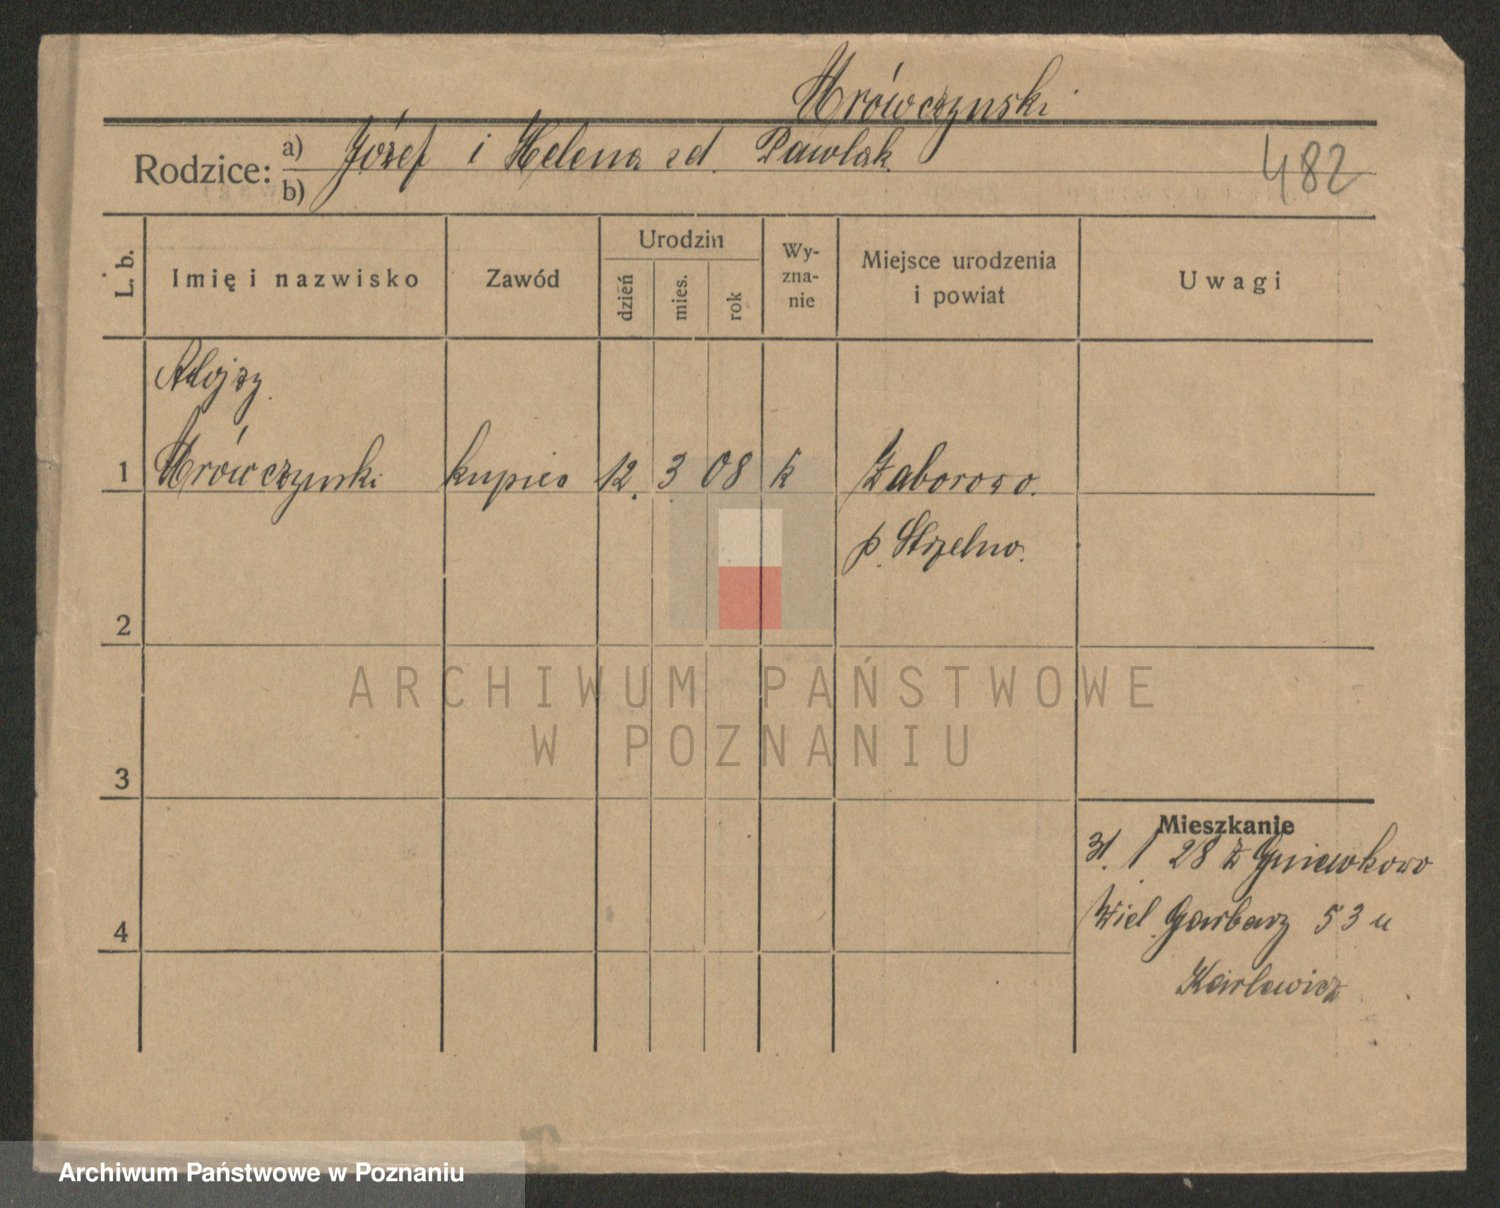 Mrówczynski
Rodzice: a) Józef i Helena zd. Pawlak
b)
482
L. b.
Imię i nazwisko
Zawód
Urodzin
dzień
mies.
rok
Wy-
zna-
nie
Miejsce urodzenia
i powiat
Uwagi
Alojzy
1 Mrówczynski kupiec 12. 3 08 k Zaborowo.
p. Strzelno.
2
3
4
Mieszkanie
31. 1 28 z Gniewkowo
Wiel. Garbary 53 u
Karlewicz
ARCHIWUM PAŃSTWOWE
W POZNANIU
Archiwum Państwowe w Poznaniu